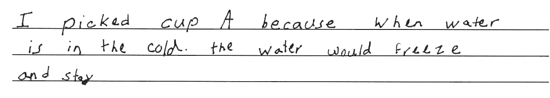 I picked cup A because when water
is in the cold. the water would freeze
and stay